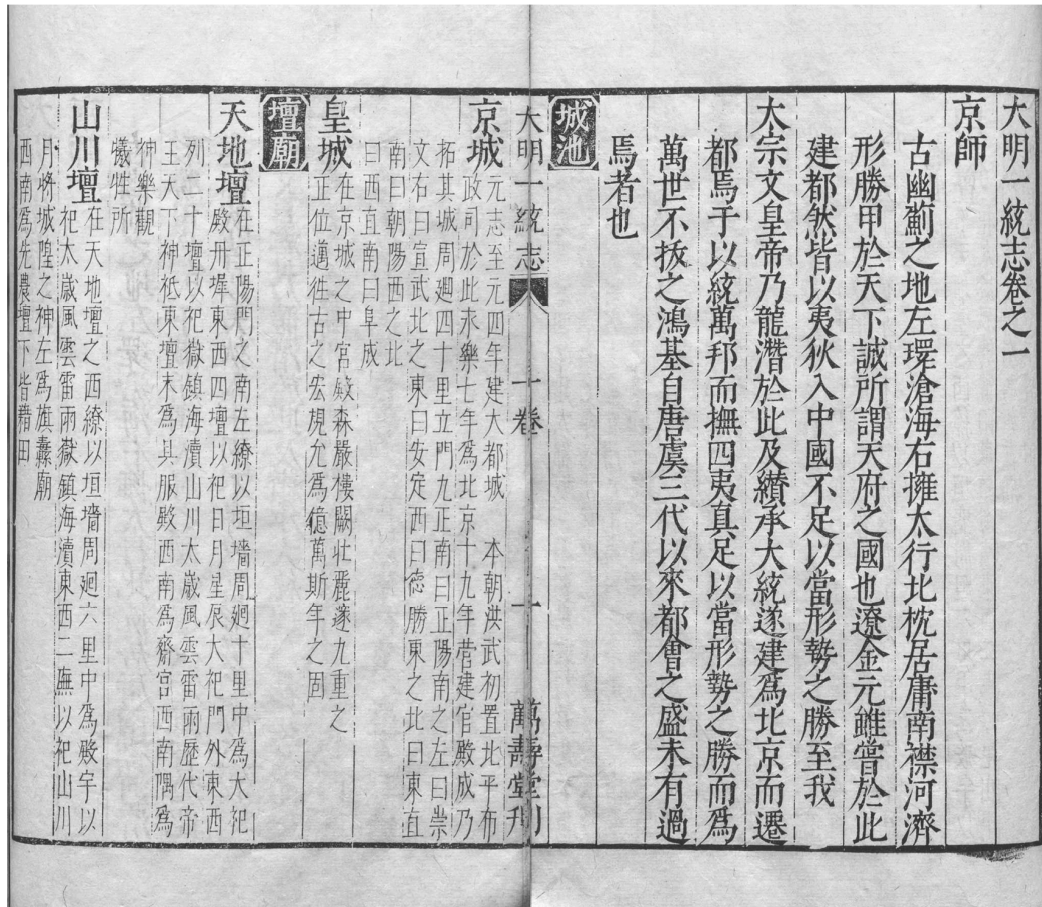 大明一統志卷之一
京師
古幽薊之地左環滄海右擁太行北枕居庸南襟河濟
形勝甲於天下誠所謂天府之國也遼金元雖嘗於此
建都然皆以夷狄入中國不足以當形勢之勝至我
太宗文皇帝乃龍潛於此及纘承大統遂建爲北京而遷
都焉于以統萬邦而撫四夷真足以當形勢之勝而爲
萬世不拔之鴻基自唐虞三代以來都會之盛未有過
焉者也
城池
大明一統志 一卷 一 萬壽堂刋
京城 元志至元四年建大都城 本朝洪武初置北平布
政司於此永樂七年爲北京十九年营建宮殿成乃
拓其城周廻四十里立門九正南曰正陽南之左曰崇
文右曰宣武北之東曰安定西曰德勝東之北曰東直
南曰朝陽西之北
曰西直南曰阜成
皇城 在京城之中宮殿森嚴樓闕壮麗邃九重之
正位邁徃古之宏規允爲億萬斯年之固
壇廟
天地壇 在正陽門之南左繚以垣墻周廻十里中爲大祀
殿丹墀東西四壇以祀日月星辰大祀門外東西
列二十壇以祀嶽鎮海瀆山川太歲風雲雷雨歷代帝
王天下神祇東壇末爲具服殿西南爲齋宮西南隅爲
神樂觀
犧牲所
山川壇 在天地壇之西繚以垣墻周廻六里中爲殿宇以
祀太歲風雲雷雨嶽鎮海瀆東西二廡以祀山川
月將城隍之神左爲旗纛廟
西南爲先農壇下皆耤田